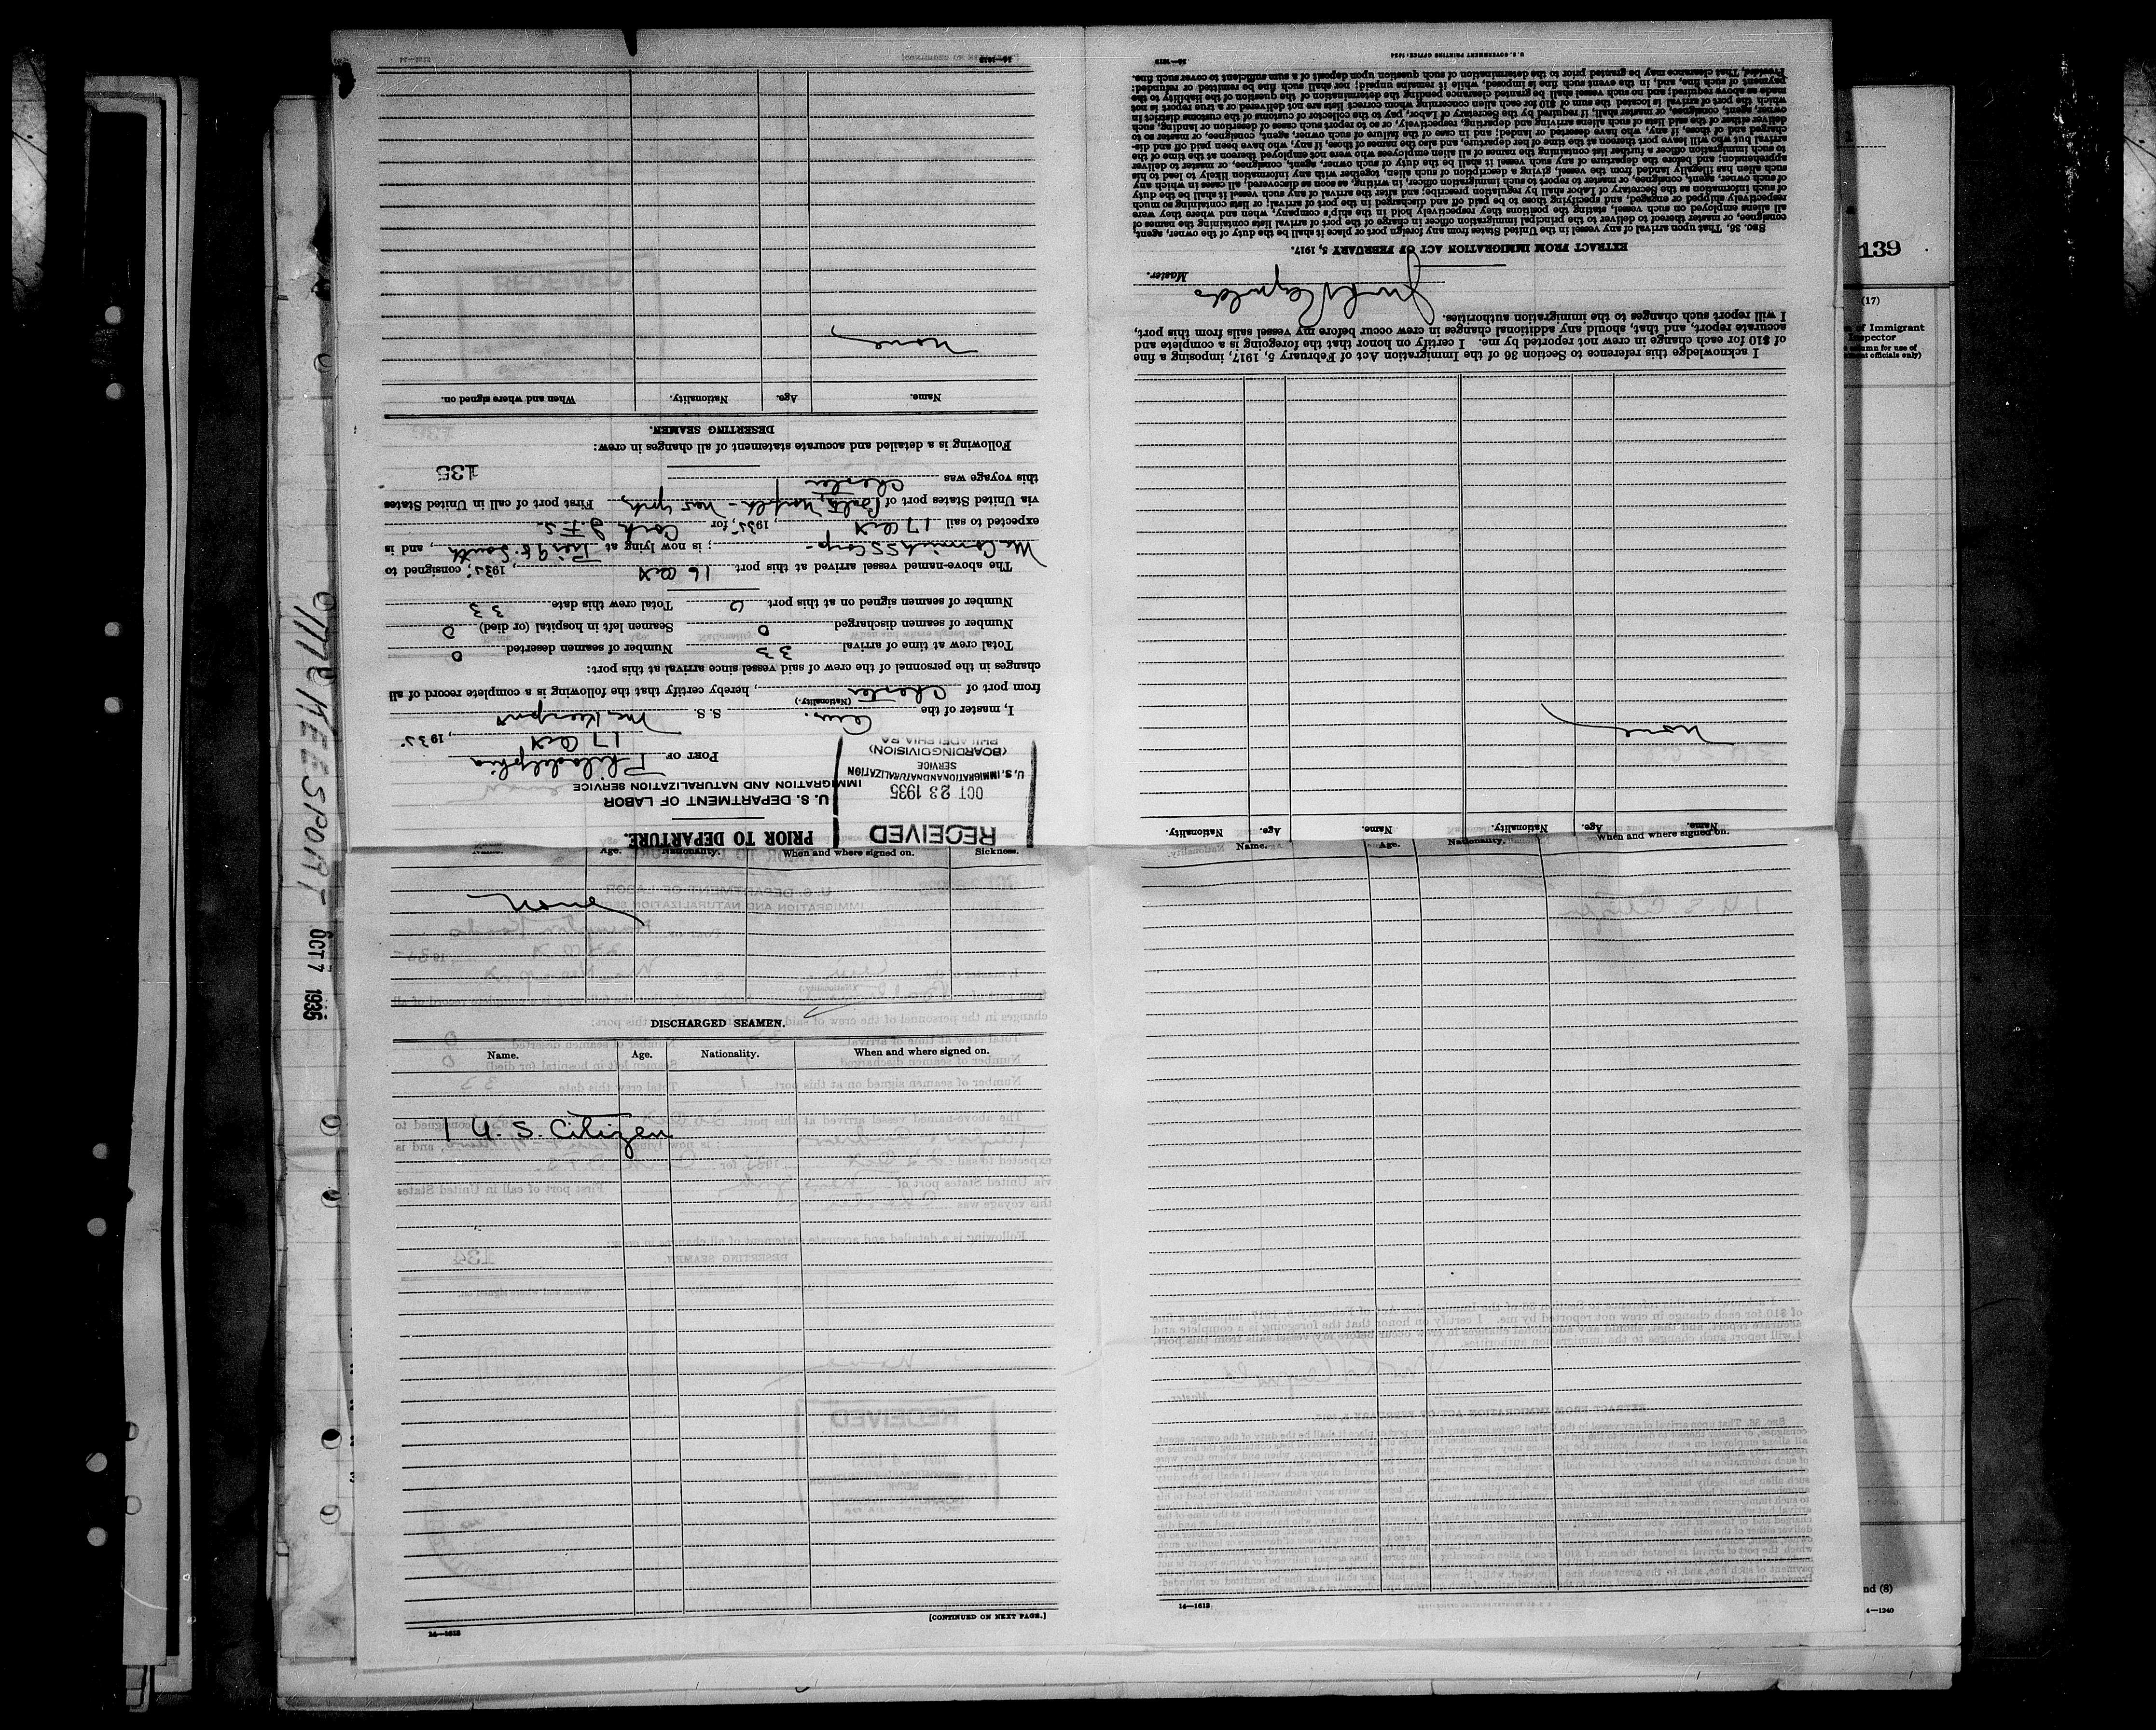 PRIOR TO DEPARTURE.
U. S. DEPARTMENT OF LABOR
IMMIGRATION AND NATURALIZATION SERVICE
RECEIVED
OCT 23 1935
U. S. IMMIGRATION AND NATURALIZATION
SERVICE
(BOARDING DIVISION)
PHILADELPHIA PA
PORT OF Philadelphia
17 Oct, 1935
I, master of the Am. S. S. McKeesport
(Nationality.)
from port of Chester, hereby certify that the following is a complete record of all
changes in the personnel of the crew of said vessel since arrival at this port:
Total crew at time of arrival 33 Number of seamen deserted 0
Number of seamen discharged 0 Seamen left in hospital (or died) 0
Number of seamen signed on at this port 0 Total crew this date 33
The above-named vessel arrived at this port 16 Oct, 1935, consigned to
McCormick SS Corp-; is now lying at Pier 98 South, and is
expected to sail 17 Oct, 1935, for Cork I. F. S.
via United States port of Balto, Norfolk - New York First port of call in United States
this voyage was Chester
135
Following is a detailed and accurate statement of all changes in crew:
DESERTING SEAMEN.
Name. Age. Nationality. When and where signed on.
None
14—1613
Name. Age. Nationality. Name. Age. Nationality.
None
I acknowledge this reference to Section 36 of the Immigration Act of February 5, 1917, imposing a fine
of $10 for each change in crew not reported by me. I certify on honor that the foregoing is a complete and
accurate report, and that, should any additional changes in crew occur before my vessel sails from this port,
I will report such changes to the immigration authorities.
Reynolds
Master.
EXTRACT FROM IMMIGRATION ACT OF FEBRUARY 5, 1917.
SEC. 36. That upon arrival of any vessel in the United States from any foreign port or place it shall be the duty of the owner, agent,
consignee, or master thereof to deliver to the principal immigration officer in charge of the port of arrival lists containing the names of
all aliens employed on such vessel, stating the positions they respectively hold in the ship's company, when and where they were
respectively shipped or engaged, and specifying those to be paid off and discharged in the port of arrival; or lists containing so much
of such information as the Secretary of Labor shall by regulation prescribe; and after the arrival of any such vessel it shall be the duty
of such owner, agent, consignee, or master to report to such immigration officer, in writing, as soon as discovered, all cases in which any
such alien has illegally landed from the vessel, giving a description of such alien, together with any information likely to lead to his
apprehension; and before the departure of any such vessel it shall be the duty of such owner, agent, consignee, or master to deliver
to such immigration officer a further list containing the names of all alien employees who were not employed thereon at the time of the
arrival but who will leave port thereon at the time of her departure, and also the names of those, if any, who have been paid off and dis-
charged and of those, if any, who have deserted or landed; and in case of the failure of such owner, agent, consignee, or master to
deliver either of the said lists of such aliens arriving and departing, respectively, or so to report such cases of desertion or landing, such
owner, agent, consignee, or master shall, if required by the Secretary of Labor, pay to the collector of customs of the customs district in
which the port of arrival is located the sum of $10 for each alien concerning whom correct lists are not delivered or a true report is not
made as above required; and no such vessel shall be granted clearance pending the determination of the question of the liability to the
payment of such fine, and, in the event such fine is imposed, while it remains unpaid; nor shall such fine be remitted or refunded:
Provided, That clearance may be granted prior to the determination of such question upon deposit of a sum sufficient to cover such fine.
14—1613
U. S. GOVERNMENT PRINTING OFFICE: 1934
Name. Age. Nationality. When and where signed on. Sickness.
None
DISCHARGED SEAMEN.
Name. Age. Nationality. When and where signed on.
1 U. S. Citizen
[CONTINUED ON NEXT PAGE.]
14—1613
Name. Age. Nationality. When and where signed on.
14—1613
McKEESPORT OCT 7 1935
139
(17)
of Immigrant
Inspector
column for use of
officials only)
nd (8)
4—1240